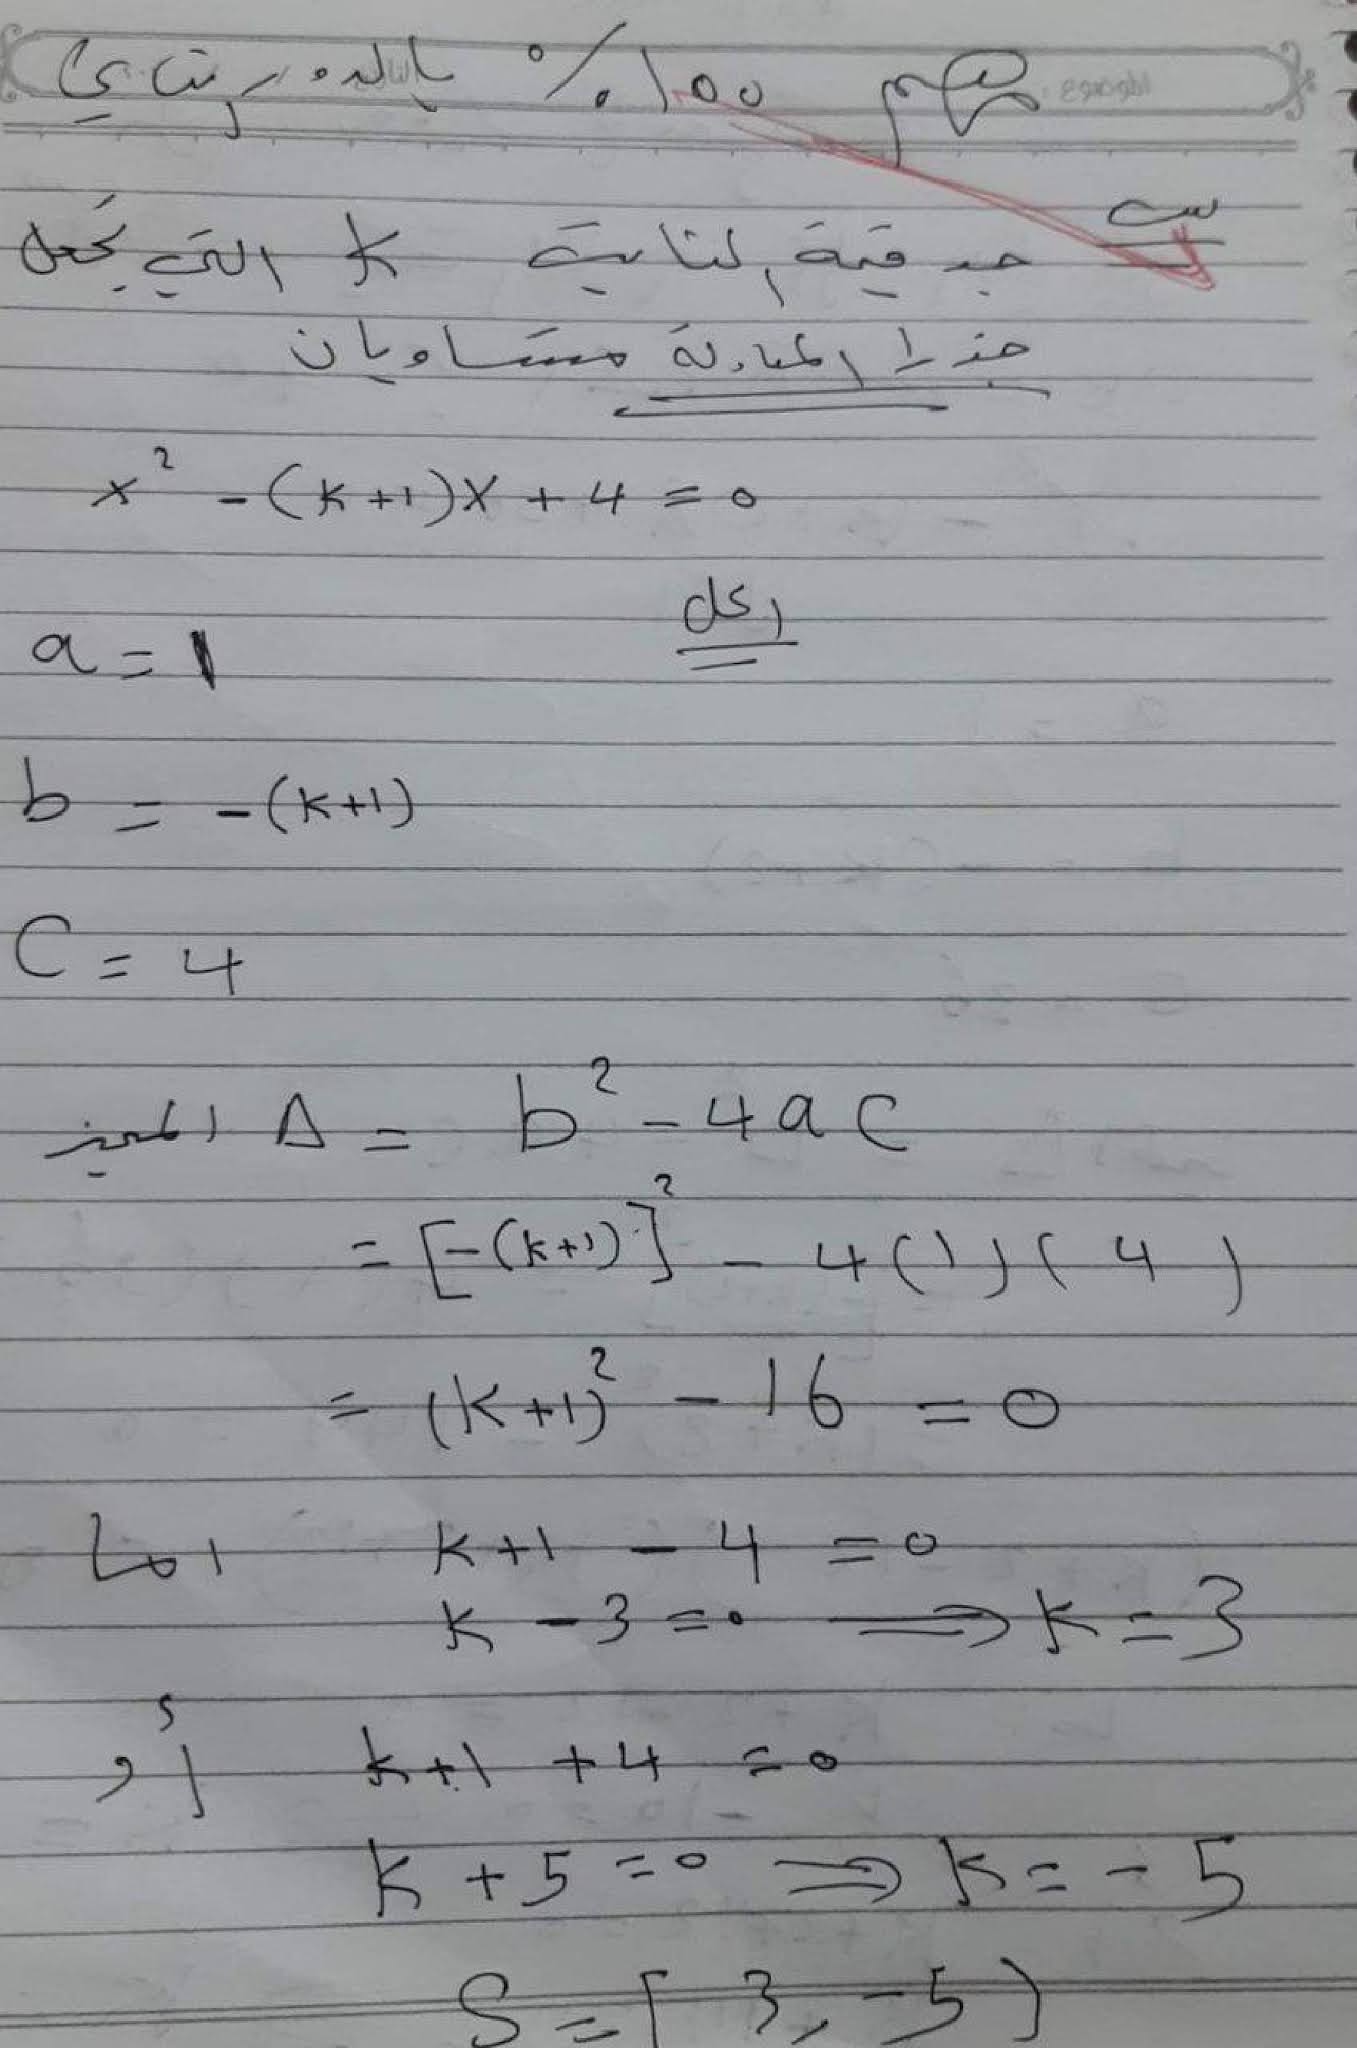 مهم 100% بالدور الثاني
س جد قيمة الثابت k التي تجعل
جذرا المعادلة متساويان
x² - (k+1)x + 4 = 0
الحل
a = 1
b = -(k+1)
C = 4
المميز Δ = b² - 4aC
= [-(k+1)]² - 4(1)(4)
= (k+1)² - 16 = 0
اما k+1 - 4 = 0
k - 3 = 0 ⟹ k = 3
أو k+1 + 4 = 0
k + 5 = 0 ⟹ k = -5
S = { 3, -5 }